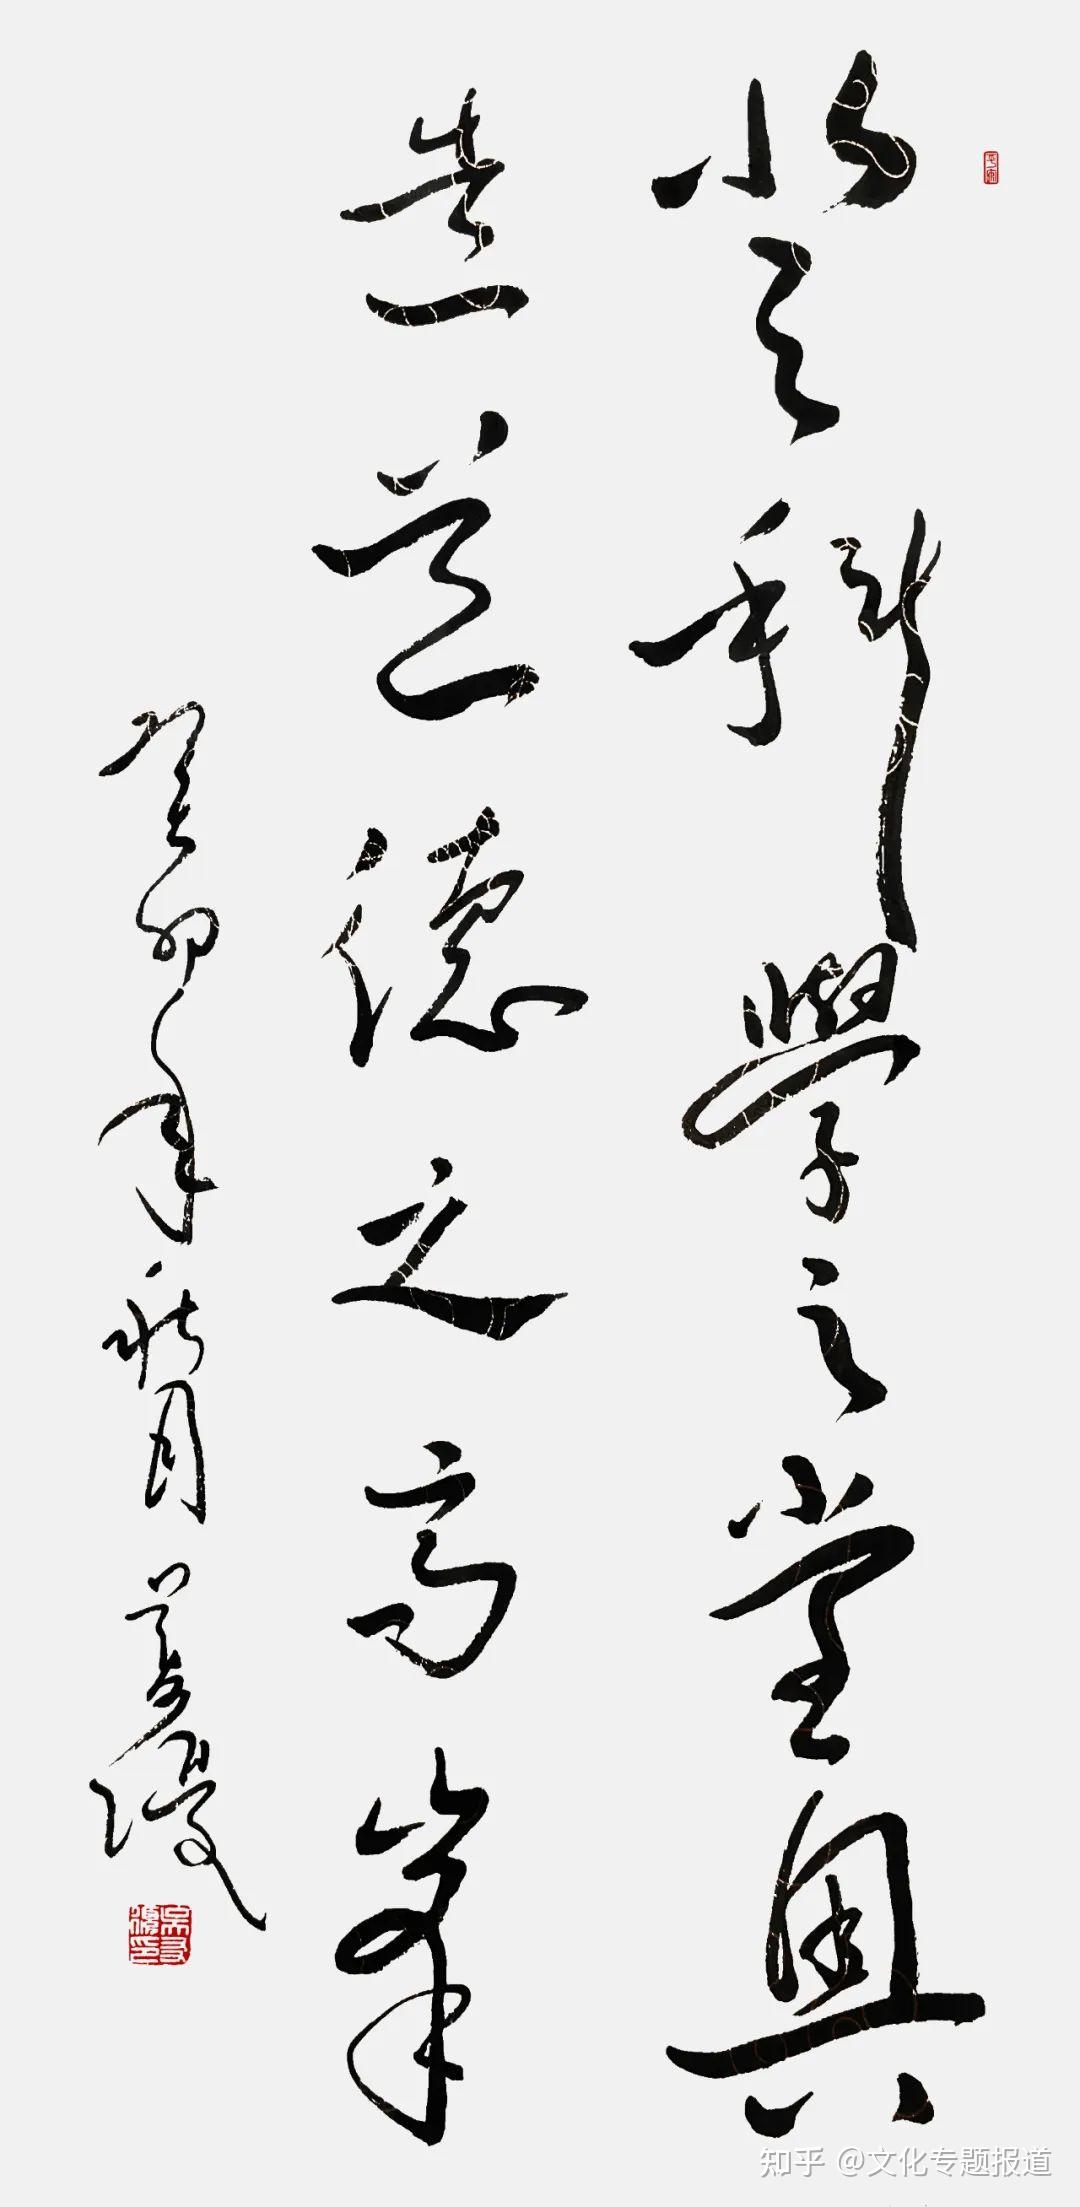 登科學之堂奧
造道德之高峯
癸卯年秋月
知乎 @文化专题报道